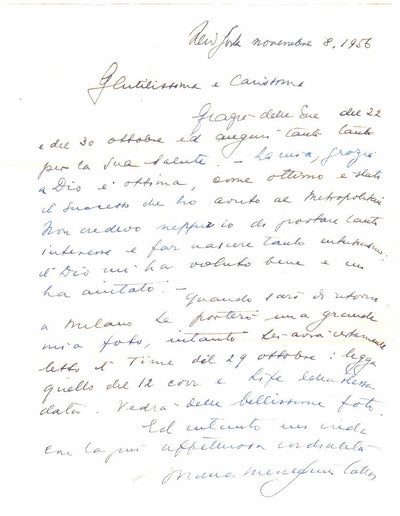 New York novembre 8, 1956
Gentilissima e Carissima
Grazie delle Sue del 22
e del 30 ottobre ed auguri tanti tanti
per la Sua Salute! - La mia, grazie
a Dio è ottima, come ottimo è stato
il successo che ho avuto al Metropolitan
Non credevo neppur io di portare tanto
interesse e far nascere tanto entusiasmo.
Il Dio mi ha voluto bene e mi
ha aiutato! -
Quando sarò di ritorno
a Milano Le porterò una grande
mia foto, intanto Lei avrà certamente
letto il Time del 29 ottobre: legga
quello del 12 corr e Life della stessa
data. Vedrà delle bellissime foto.
Ed intanto mi creda
con la più affettuosa cordialità
Maria Meneghini Callas